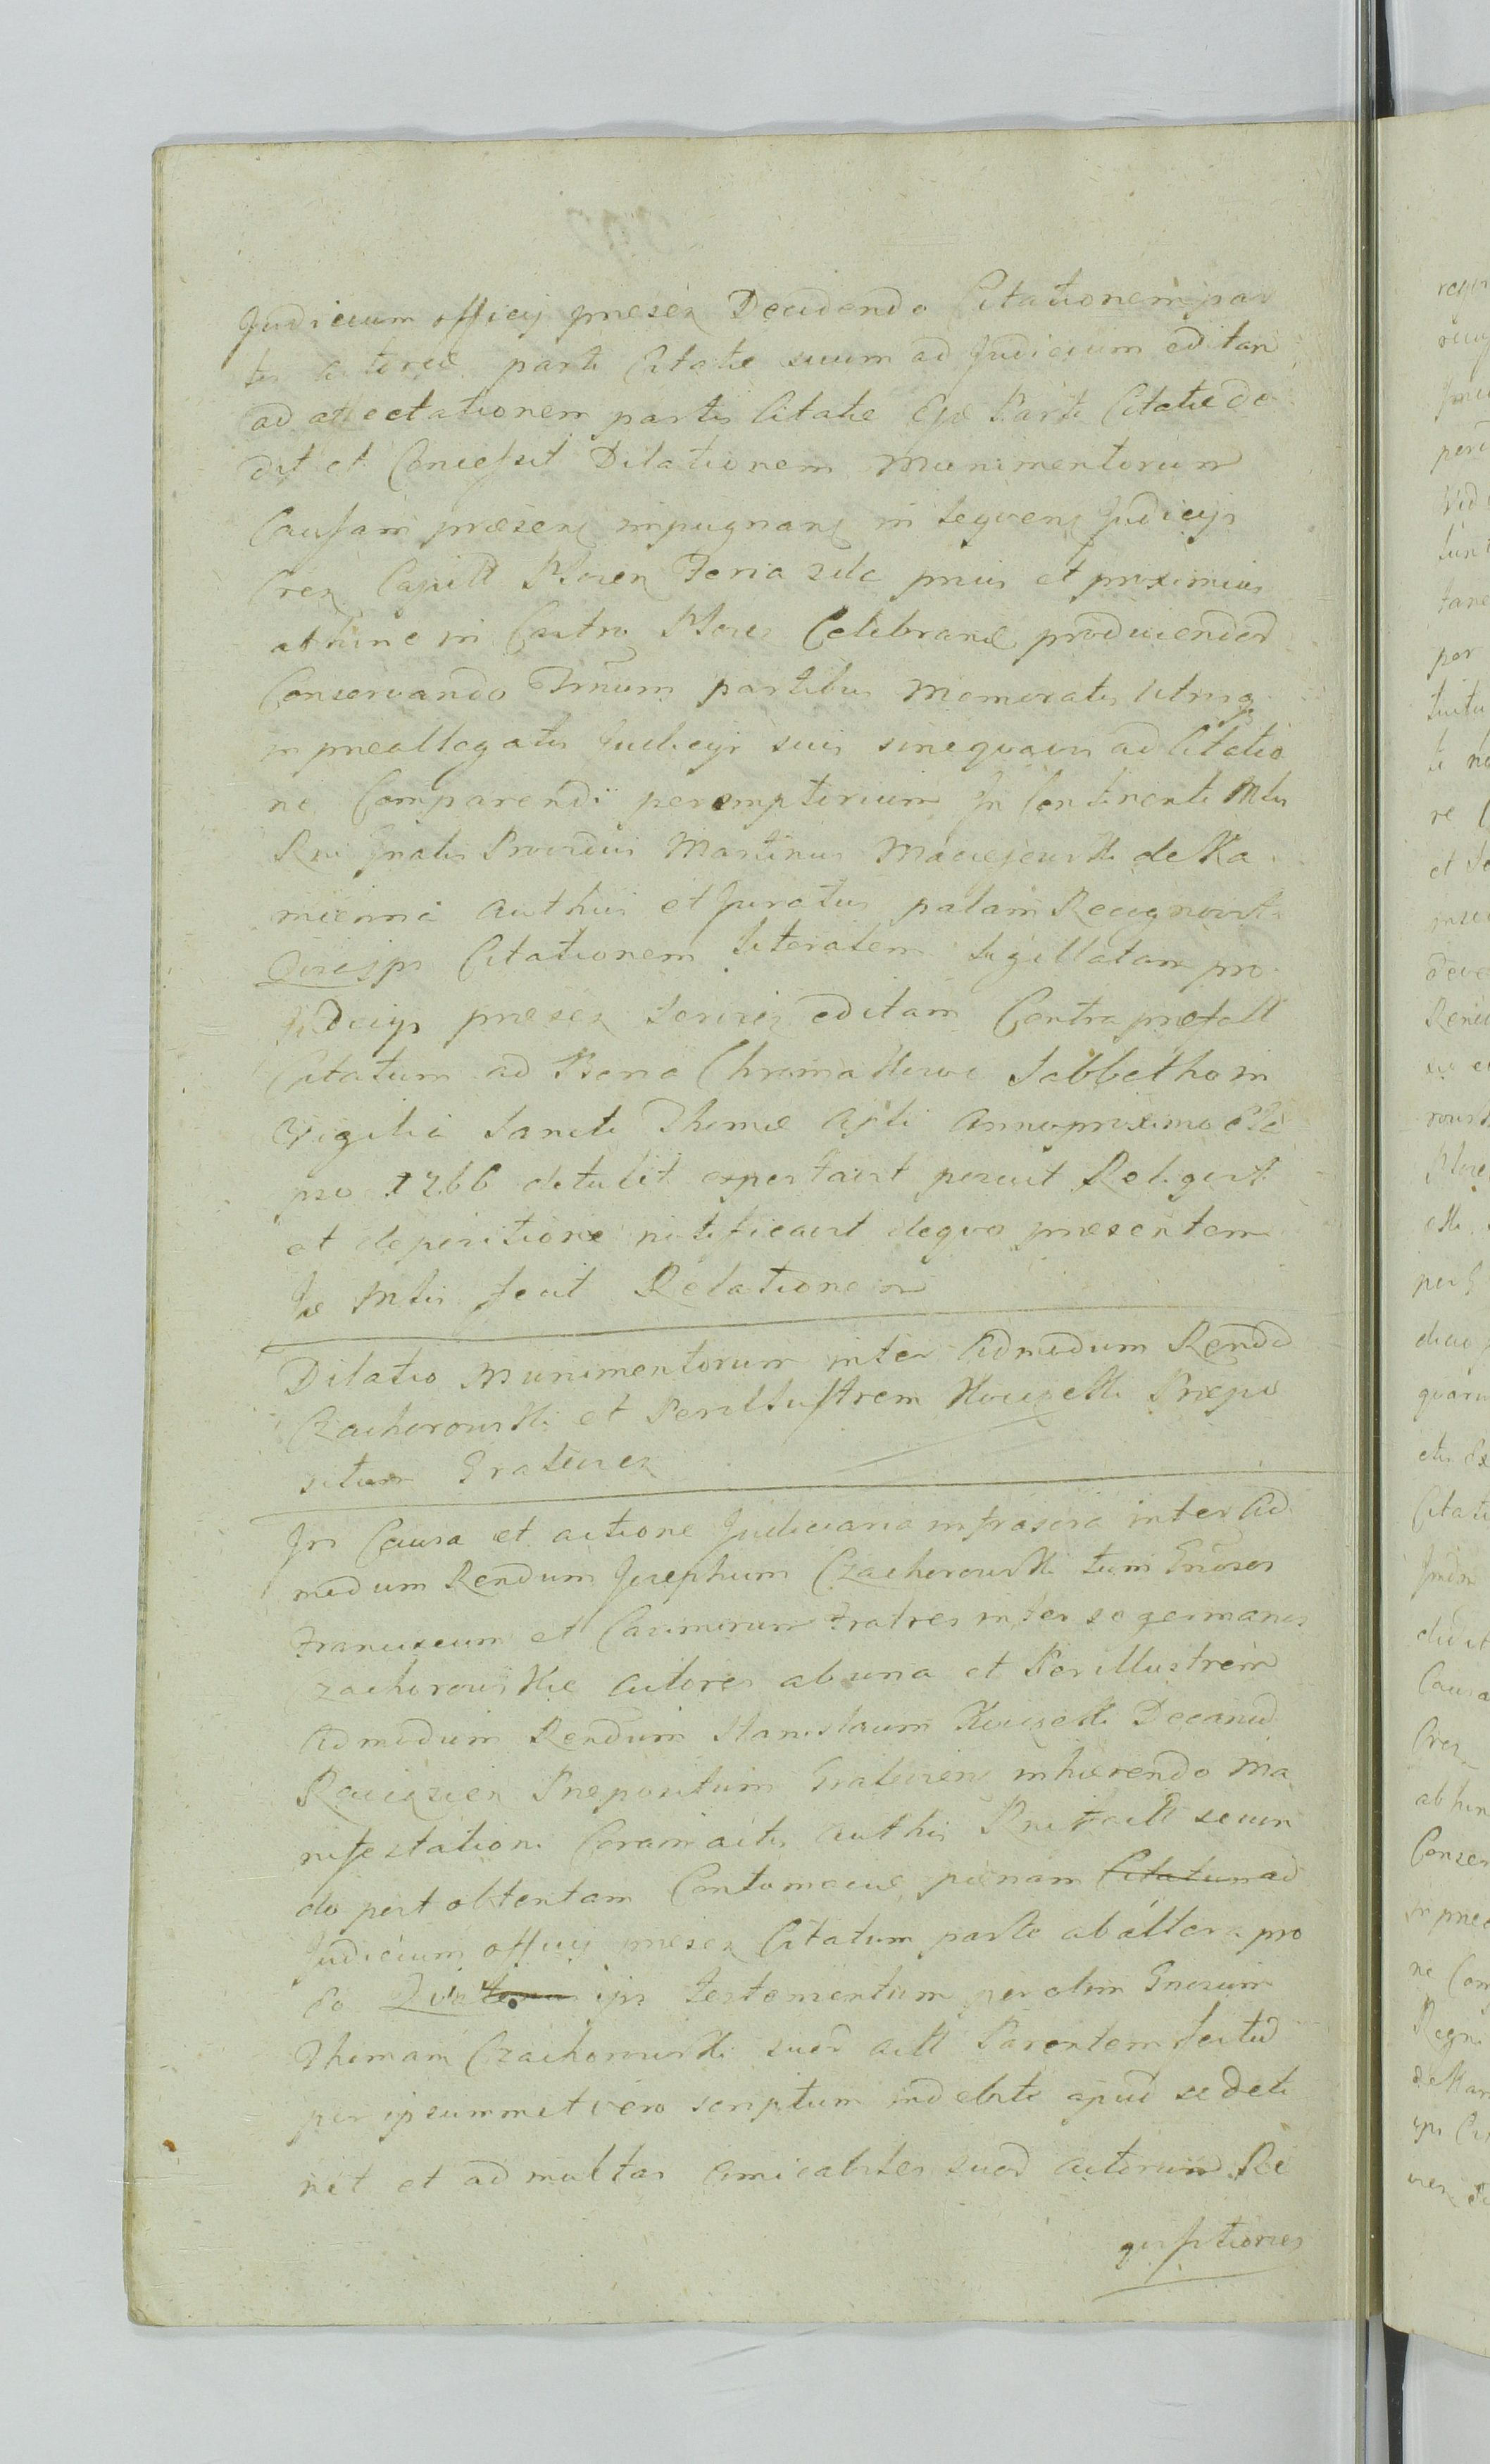 Judicium officij presen Decidendo Citationem par
tis actoreæ parti Citatæ suum ad Judicium editam
ad affectationem partis Citatæ Ejdē Parti Citatæ de
dit et Concessit Dilationem Munimentorum
Causam præsen impugnan in sequen Judicijs
Cren Capitt Ploren Feria 2da prius et proximius
abhinc in Castro Plocen Celebran producendor
Conservando Trnum partibus memoratis utrisq
in preallegatis Judicijs suis sinequavis ad Citatio
ne Comparendi peremptorium In Continenti Mtu
Rni Gnalis Providus Martinus Maciejewski de Ka
mienna authus et Juratus palam Recognovit
Quiasjps Citationem literalem sigillatam pro
Judicijs presen servien editam Contra præfatt
Citatum ad Bona Chromakowo Sabbatho in
Vigilia Sancti Thomæ Apli anno proximo Ela
pso 1766 detulit exportavit posuit Reliquit
et depositione notificavit dequo presentem
Je Mtlis fecit Relationem
Dilatio Munimentorum inter Admodum Rendd
Czachorowski et Perillustrem Kocięcki Præpo
situm Gralewen
In Causa et actione Judiciaria infrascra inter Ad
modum Rendum Josephum Czachorowski tum Gnosos
Franciscum et Casimirum Fratres inter se germanos
Czachorowskie actores ab una et Perillustrem
Admodum Rendum Stanislaum Kocięcki Decanū
Raciązien Præpositum Gralewien inhærendo Ma
nifestationi Coram actis authis Rni factt secun
do post obtentam Contumaciæ pænam Citatum ad
Judicium officij presen Citatum parte ab altera pro
eo Quia ips testamentum per olim Gnosum
Thomam Czachorowski suor actt Parentem factū
per ipsummet vero scriptum indebite apud se deti
net et ad multas amicabiles suor actorum Re
quisitiones